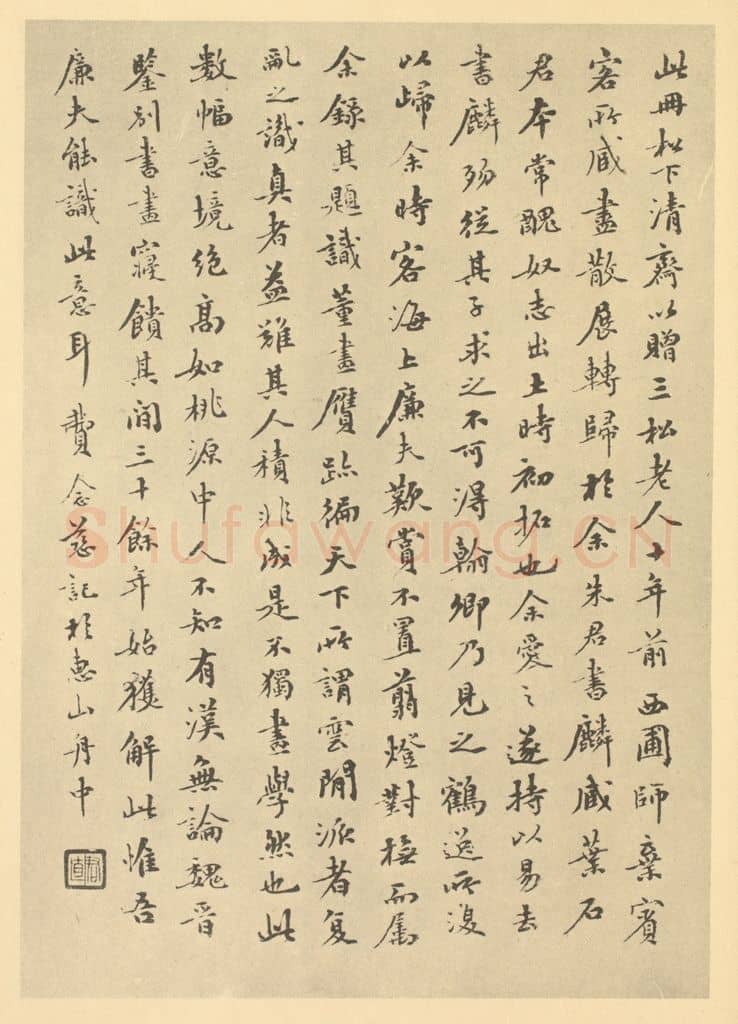 此冊松下清齋以贈三松老人十年前西圃師棄賓
客所臧畫散展轉歸於余朱君書麟臧葉石
君本常醜奴志出土時初拓也余愛〻遂持以易去
書麟歾從其子求之不可得翰卿乃見之鶴逸所復
以歸余時客海上廉夫歎賞不置翦燈對橅而屬
余錄其題識董畫贋跡徧天下所謂雲間派者复
亂之識真者益難其人積非成是不獨畫學然也此
數幅意境絕高如桃源中人不知有漢無論魏晋
鑒別書畫寢饋其間三十餘年始獲解此惟吾
廉夫能識此意耳 費念慈記於惠山舟中
君直
Shufawang.CN